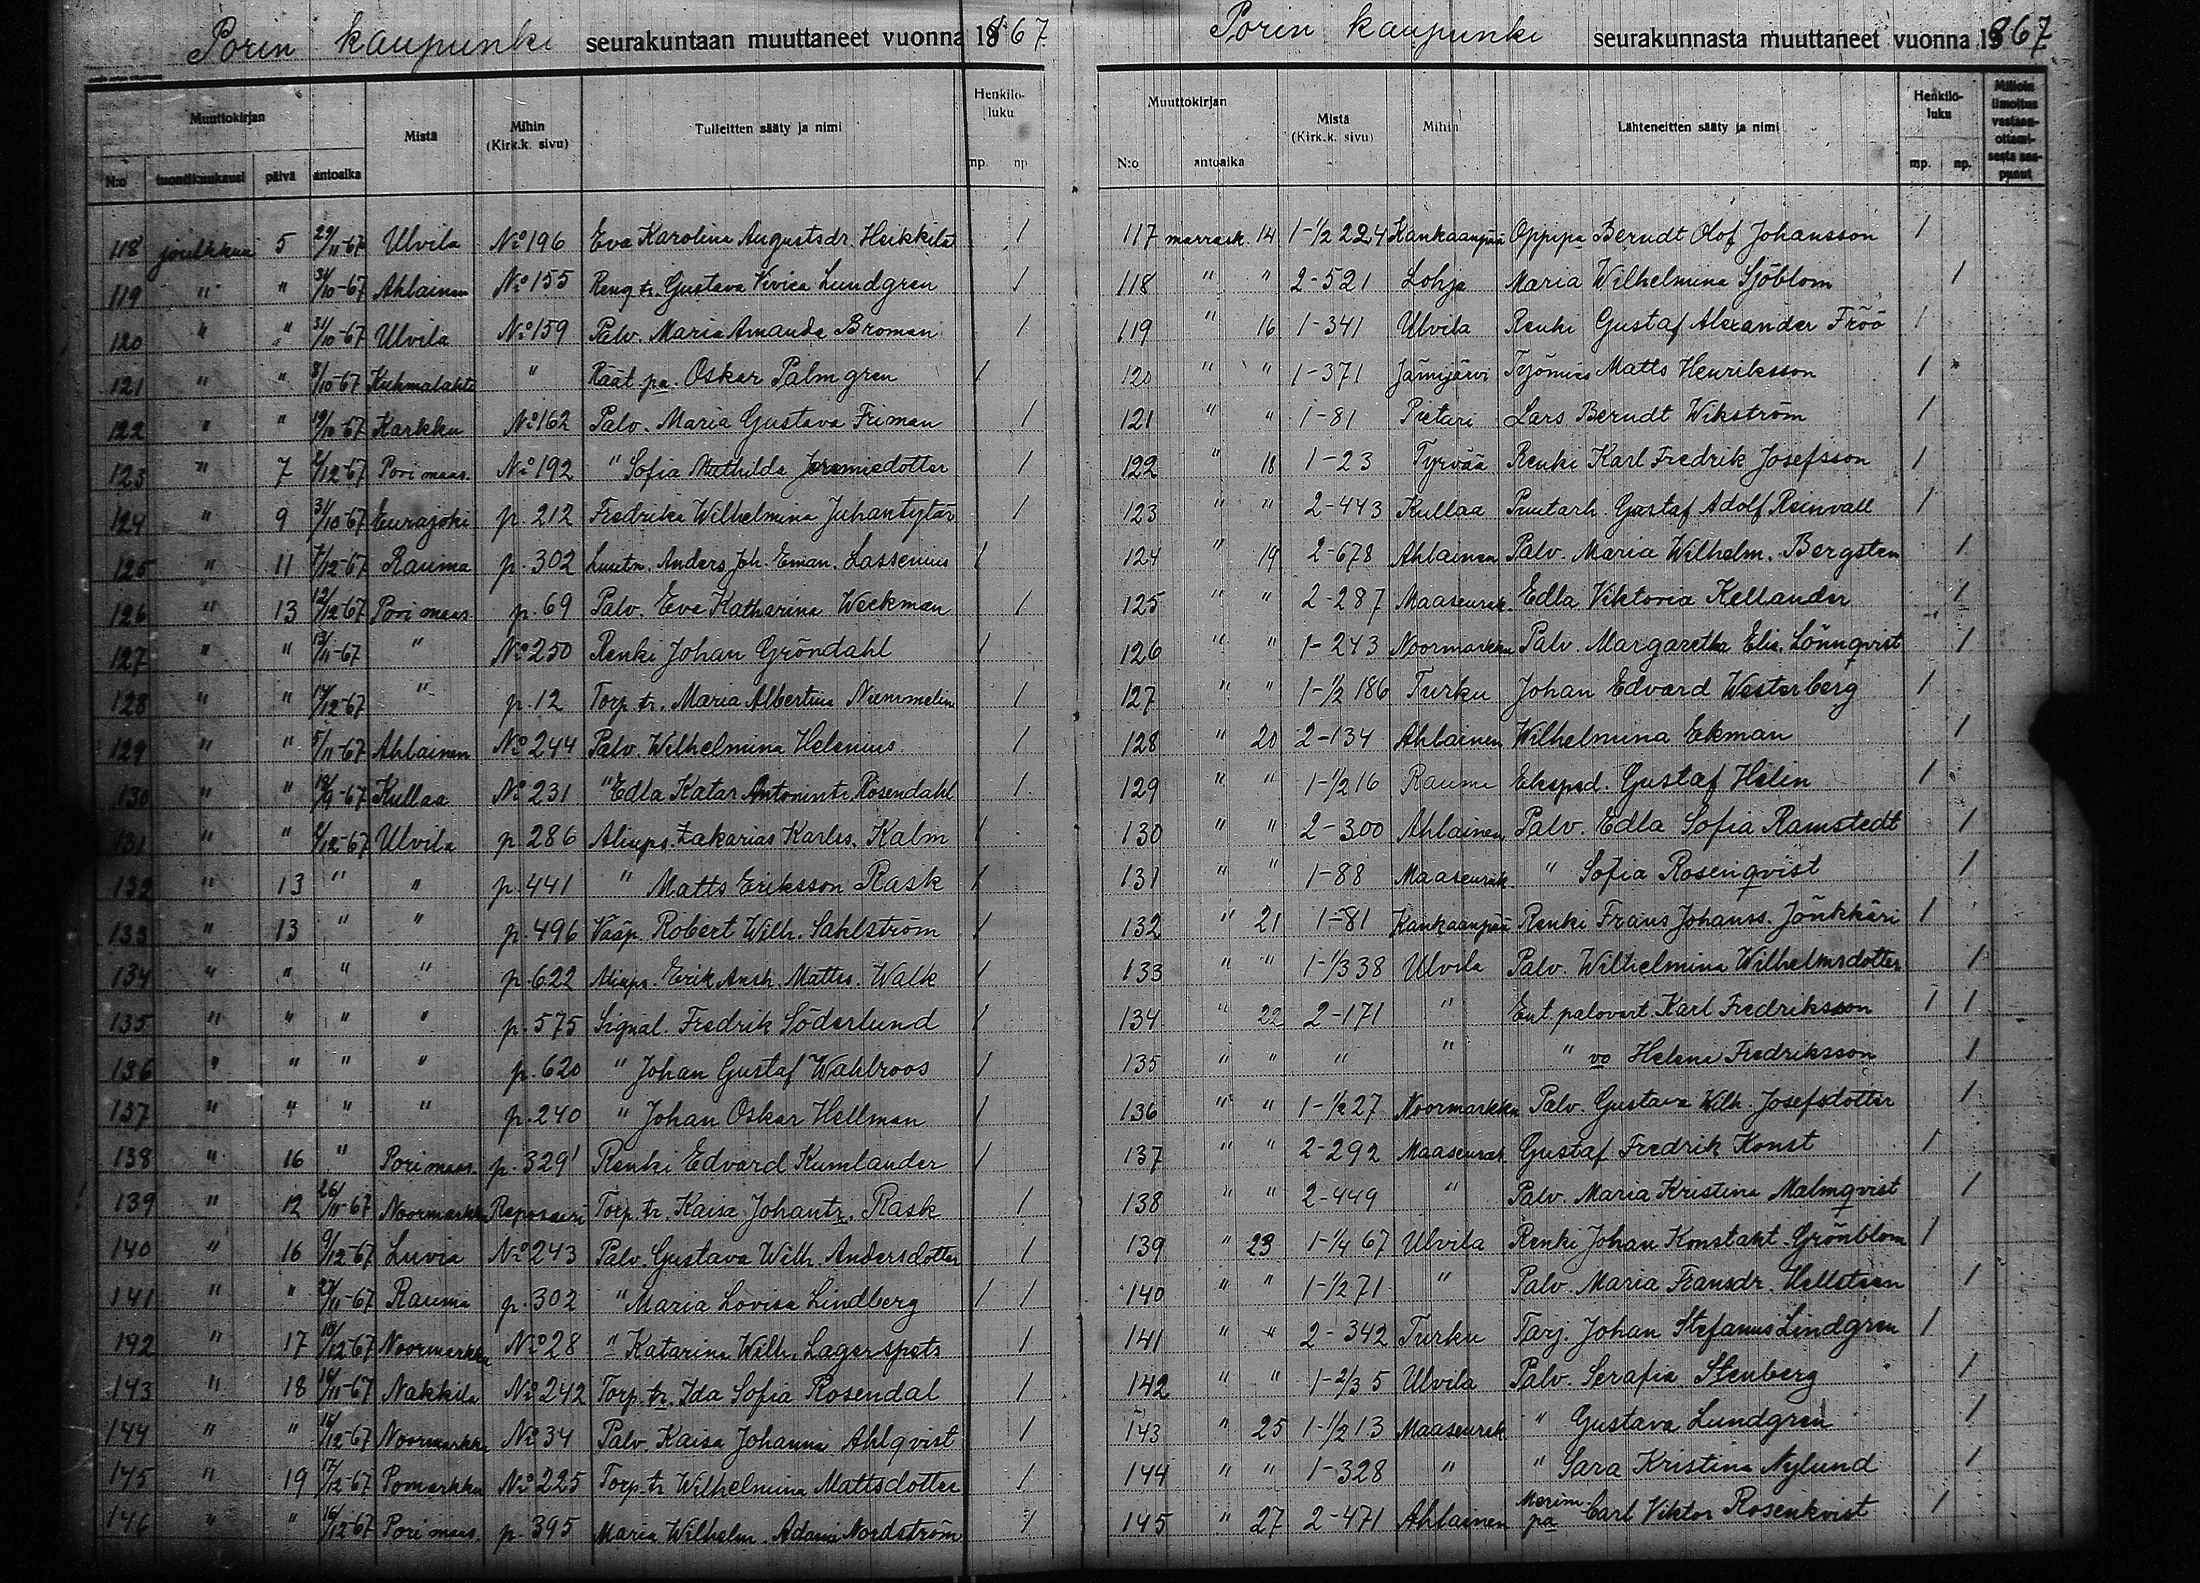 Porin kaupunki seurakuntaan muuttaneet vuonna 1867
Muuttokirjan Mistä Mihin (Kirk.k. sivu) Tulleitten sääty ja nimi Henkilö-luku
N:o tuontikuukausi päivä antoaika mp. np
118 joulukuu 5 29/11-67 Ulvila No 196 Eva Karolina Augustsdr. Heikkilä 1
119 " " 31/10-67 Ahlainen No 155 Reng tr. Gustava Vivica Lundgren 1
120 " " 31/10-67 Ulvila No 159 Palv. Maria Amanda Broman 1
121 " " 8/10-67 Kuhmalahti " Räät pa. Oskar Palmgren 1
122 " " 19/10-67 Karkku No 162 Palv. Maria Gustava Friman 1
123 " 7 6/12-67 Pori maas. No 192 " Sofia Mathilda Jeremiedotter 1
124 " 9 31/10-67 Eurajoki p. 212 Fredrika Wilhelmina Juhantytär 1
125 " 11 7/12-67 Rauma p. 302 Luutn. Anders Joh. Eman. Lassenius 1
126 " 13 12/12-67 Pori maas p. 69 Palv. Eva Katharina Weckman 1
127 " " 13/11-67 " No 250 Renki Johan Gröndahl 1
128 " " 17/12-67 " p. 12 Torp. tr. Maria Albertina Niemmelin 1
129 " " 5/11-67 Ahlainen No 244 Palv. Wilhelmina Helenius 1
130 " " 18/9-67 Kullaa No 231 " Edla Katar Antonintr. Rosendahl 1
131 " " 6/12-67 Ulvila p. 286 Aliups. Zakarias Karlss. Kalm 1
132 " 13 " " p. 441 " Matts Eriksson Rask 1
133 " 13 " " p. 496 Vääp. Robert Wilh. Sahlström 1
134 " " " " p. 622 Aliups. Erik Ansh. Mattss. Walk 1
135 " " " " p. 575 Signal. Fredrik Söderlund 1
136 " " " " p. 620 " Johan Gustaf Wahlroos 1
137 " " " " p. 240 " Johan Oskar Hellman 1
138 " 16 " Pori maas. p. 329 Renki Edvard Kumlander 1
139 " 12 26/11-67 Noormarkku Reposaari Torp. tr. Kaisa Johantr. Rask 1
140 " 16 9/12-67 Luvia No 243 Palv. Gustava Wilh. Andersdotter 1
141 " " 27/11-67 Rauma p. 302 " Maria Lovisa Lindberg 1 1
192 " 17 10/12-67 Noormarkku No 28 " Katarina Wilh. Lagerspets 1
143 " 18 16/11-67 Nakkila No 242 Torp. tr. Ida Sofia Rosendal 1
144 " " 16/12-67 Noormarkku No 34 Palv. Kaisa Johanna Ahlqvist 1
145 " 19 17/12-67 Pomarkku No 225 Torp. tr Wilhelmina Mattsdotter 1
146 " " 16/12-67 Pori maas. p. 395 Maria Wilhelm. Adami Nordström 1
Porin kaupunki seurakunnasta muuttaneet vuonna 1867
Muuttokirjan Mistä (Kirk.k. sivu) Mihin Lähteneitten sääty ja nimi Henkilö-luku Milloin ilmoitus vastaan-ottami-sesta saa-punut
N:o antoaika mp. np.
117 marrask. 14 1-1/2 224 Kankaanpää Oppipa Berndt Olof Johansson 1
118 " " 2-521 Lohja Maria Wilhelmina Sjöblom 1
119 " 16 1-341 Ulvila Renki Gustaf Alexander Fröö 1
120 " " 1-371 Jämijärvi Työmies Matts Henriksson 1
121 " " 1-81 Pietari Lars Berndt Wikström 1
122 " 18 1-23 Tyrvää Renki Karl Fredrik Josefsson 1
123 " " 2-443 Kullaa Puutarh. Gustaf Adolf Reinvall 1
124 " 19 2-678 Ahlainen Palv. Maria Wilhelm. Bergsten 1
125 " " 2-287 Maaseurak Edla Viktoria Kellander 1
126 " " 1-243 Noormarkku Palv. Margaretha Elis. Lönnqvist 1
127 " " 1-1/2 186 Turku Johan Edvard Westerberg 1
128 " 20 2-134 Ahlainen Wilhelmina Ekman 1
129 " " 1-1/2 16 Rauma Eksped. Gustaf Helin 1
130 " " 2-300 Ahlainen Palv. Edla Sofia Ramstedt 1
131 " " 1-88 Maaseurak. " Sofia Rosenqvist 1
132 " 21 1-81 Kankaanpää Renki Frans Johanss. Jönkkäri 1
133 " " 1-1/3 38 Ulvila Palv. Wilhelmina Wilhelmsdotter 1
134 " 22 2-171 " Ent palovart. Karl Fredriksson 1 1
135 " " " " " vo Helena Fredriksson 1
136 " " 1-1/2 27 Noormarkku Palv. Gustava Wilh. Josefsdotter 1
137 " " 2-292 Maaseurak Gustaf Fredrik Konst 1
138 " " 2-449 " Palv. Maria Kristina Malmqvist 1
139 " 23 1-1/4 67 Ulvila Renki Johan Konstant. Grönblom 1
140 " " 1-1/2 71 " Palv. Maria Fransdr. Hellsteen 1
141 " " 2-342 Turku Tarj. Johan Stefanus Lindgren 1
142 " " 1-2/3 5 Ulvila Palv. Serafia Stenberg 1
143 " 25 1-1/2 13 Maaseurak " Gustava Lundgren 1
144 " " 1-328 " " Sara Kristina Nylund 1
145 " 27 2-471 Ahlainen Merim. pa Carl Viktor Rosenkvist 1